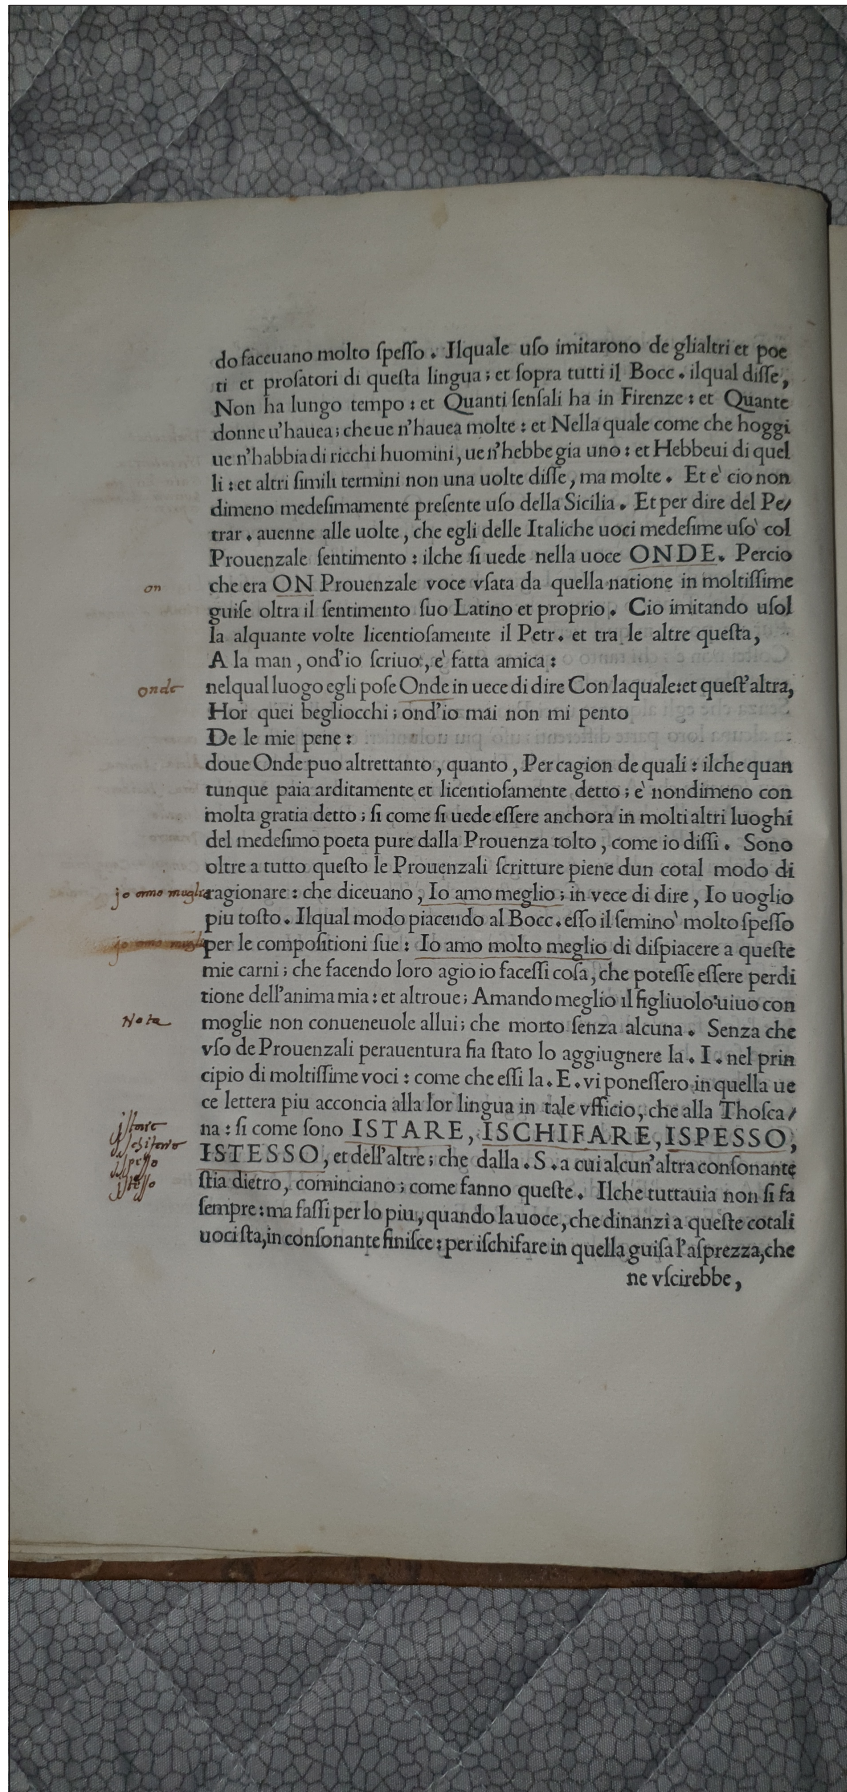 do faceuano molto ſpeſſo. Ilquale uſo imitarono de glialtri et poe
ti et proſatori di queſta lingua; et ſopra tutti il Bocc. ilqual diſſe,
Non ha lungo tempo: et Quanti ſenſali ha in Firenze: et Quante
donne u'hauea; che ue n'hauea molte: et Nella quale come che hoggi
ue n'habbia di ricchi huomini, ue n'hebbe gia uno: et Hebbeui di quel
li: et altri ſimili termini non una uolte diſſe, ma molte. Et e' cio non
dimeno medeſimamente preſente uſo della Sicilia. Et per dire del Pe/
trar. auenne alle uolte, che egli delle Italiche uoci medeſime uſo' col
Prouenzale ſentimento: ilche ſi uede nella uoce ONDE. Percio
on
che era ON Prouenzale voce vſata da quella natione in moltiſſime
guiſe oltra il ſentimento ſuo Latino et proprio. Cio imitando uſol
la alquante volte licentioſamente il Petr. et tra le altre queſta,
A la man, ond'io ſcriuo, e' fatta amica:
onde
nelqual luogo egli poſe Onde in uece di dire Con laquale: et queſt'altra,
Hor quei begliocchi; ond'io mai non mi pento
De le mie pene:
doue Onde puo altrettanto, quanto, Per cagion de quali: ilche quan
tunque paia arditamente et licentioſamente detto; e' nondimeno con
molta gratia detto; ſi come ſi uede eſſere anchora in molti altri luoghi
del medeſimo poeta pure dalla Prouenza tolto, come io diſſi. Sono
oltre a tutto queſto le Prouenzali ſcritture piene dun cotal modo di
jo amo meglio
ragionare: che diceuano, Io amo meglio; in vece di dire, Io uoglio
piu toſto. Ilqual modo piacendo al Bocc. eſſo il ſemino' molto ſpeſſo
jo amo meglio
per le compoſitioni ſue: Io amo molto meglio di diſpiacere a queſte
mie carni; che facendo loro agio io faceſſi coſa, che poteſſe eſſere perdi
tione dell'anima mia: et altroue; Amando meglio il figliuolo uiuo con
Nota
moglie non conueneuole allui; che morto ſenza alcuna. Senza che
vſo de Prouenzali perauentura ſia ſtato lo aggiugnere la. I. nel prin
cipio di moltiſſime voci: come che eſſi la. E. vi poneſſero in quella ue
ce lettera piu acconcia alla lor lingua in tale vfficio, che alla Thoſca/
iſtare
na: ſi come ſono ISTARE, ISCHIFARE, ISPESSO,
iſchifare
iſpeſſo
ISTESSO, et dell'altre; che dalla. S. a cui alcun'altra conſonante
iſteſſo
ſtia dietro, cominciano; come fanno queſte. Ilche tuttauia non ſi fa
ſempre: ma faſſi per lo piu, quando la uoce, che dinanzi a queſte cotali
uoci ſta, in conſonante finiſce: per iſchifare in quella guiſa l'aſprezza, che
ne vſcirebbe,